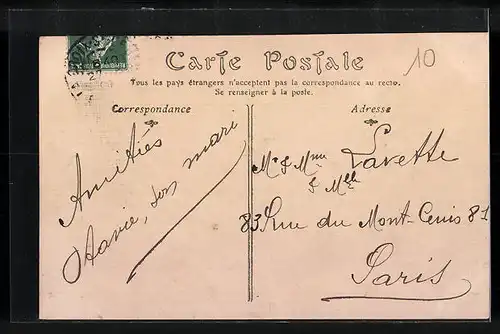 10
Carte Postale
Tous les pays étrangers n'acceptent pas la correspondance au recto.
Se renseigner à la poste.
Correspondance
Adresse
Amitiés
son mari
Mr & Mme Lavette
& Mlle
83 Rue du Mont-Cenis 81
Paris